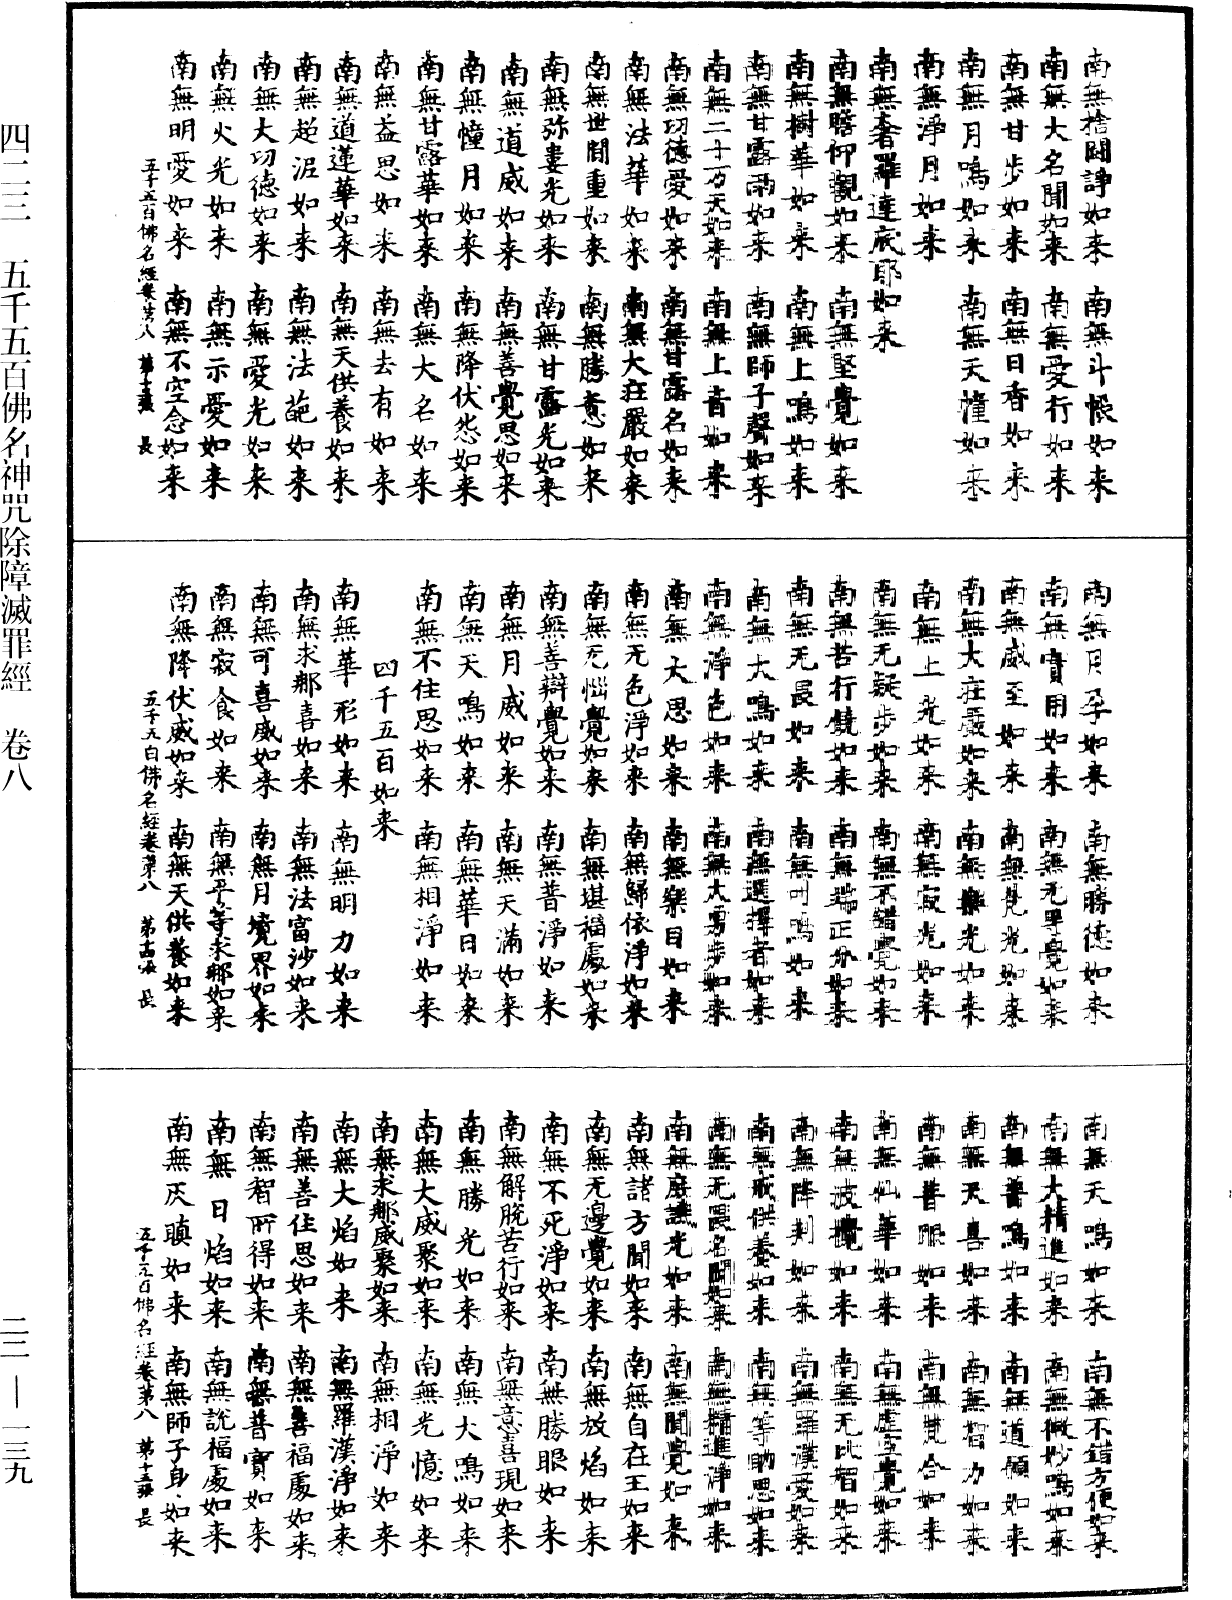 南無捨鬪諍如来 南無斗帳如来
南無大名聞如来 南無愛行如来
南無甘步如来 南無日香如来
南無月鳴如来 南無天幢如来
南無淨月如来
南無奢羅達底耶如来
南無瞻仰觀如来 南無堅覺如来
南無樹華如来 南無上鳴如来
南無甘露雨如来 南無師子聲如来
南無二千万天如来 南無上音如来
南無功德愛如来 南無甘露名如来
南無法華如来 南無大莊嚴如来
南無世間重如来 南無勝意如来
南無弥婁光如来 南無甘露光如来
南無道威如来 南無善覺思如来
南無憧月如来 南無降伏怨如来
南無甘露華如来 南無大名如来
南無益思如来 南無去有如来
南無道蓮華如来 南無天供養如来
南無超泥如来 南無法葩如来
南無大功德如来 南無愛光如来
南無火光如来 南無示愛如来
南無明愛如来 南無不空念如来
五千五百佛名經卷第八 第十三張 長
南無月孕如来 南無勝德如来
南無實用如来 南無无畢竟如来
南無威至如来 南無見光如来
南無大莊嚴如来 南無樂光如来
南無上光如来 南無寂光如来
南無无疑步如来 南無不錯覺如来
南無苦行鐃如来 南無端正分如来
南無无畏如来 南無叫鳴如来
南無大鳴如来 南無選擇者如来
南無淨色如来 南無大勇步如来
南無大思如来 南無樂目如来
南無无色淨如来 南無歸依淨如来
南無无惱覺如来 南無堪福處如来
南無善辯覺如来 南無普淨如来
南無月威如来 南無天滿如来
南無天鳴如来 南無華日如来
南無不住思如来 南無相淨如来
四千五百如来
南無華形如来 南無明力如来
南無求那喜如来 南無法富沙如来
南無可喜威如来 南無月境界如来
南無寂食如来 南無平等求那如来
南無降伏威如来 南無天供養如来
五千五百佛名經卷第八 第十四張 長
南無天鳴如来 南無不錯方便如来
南無大精進如来 南無微妙鳴如来
南無普鳴如来 南無道願如来
南無天喜如来 南無智力如来
南無普眼如来 南無梵合如来
南無仙華如来 南無虛空覺如来
南無波𢹂如来 南無无比智如来
南無降刺如来 南無羅漢愛如来
南無戒供養如来 南無等助思如来
南無无畏名聞如来 南無精進淨如来
南無摩譏光如来 南無聞覺如来
南無諸方聞如来 南無自在王如来
南無无邊覺如来 南無放焰如来
南無不死淨如来 南無勝眼如来
南無解脫苦行如来 南無意喜現如来
南無勝光如来 南無大鳴如来
南無大威聚如来 南無光憶如来
南無求那威聚如来 南無相淨如来
南無大焰如来 南無羅漢淨如来
南無善住思如来 南無善福處如来
南無智所得如来 南無普寶如来
南無日焰如来 南無說福處如来
南無灰瞋如来 南無師子身如来
五千五百佛名經卷第八 第十五張 長
四二三 五千五百佛名神咒除障滅罪經 卷八
二三 — 一三九